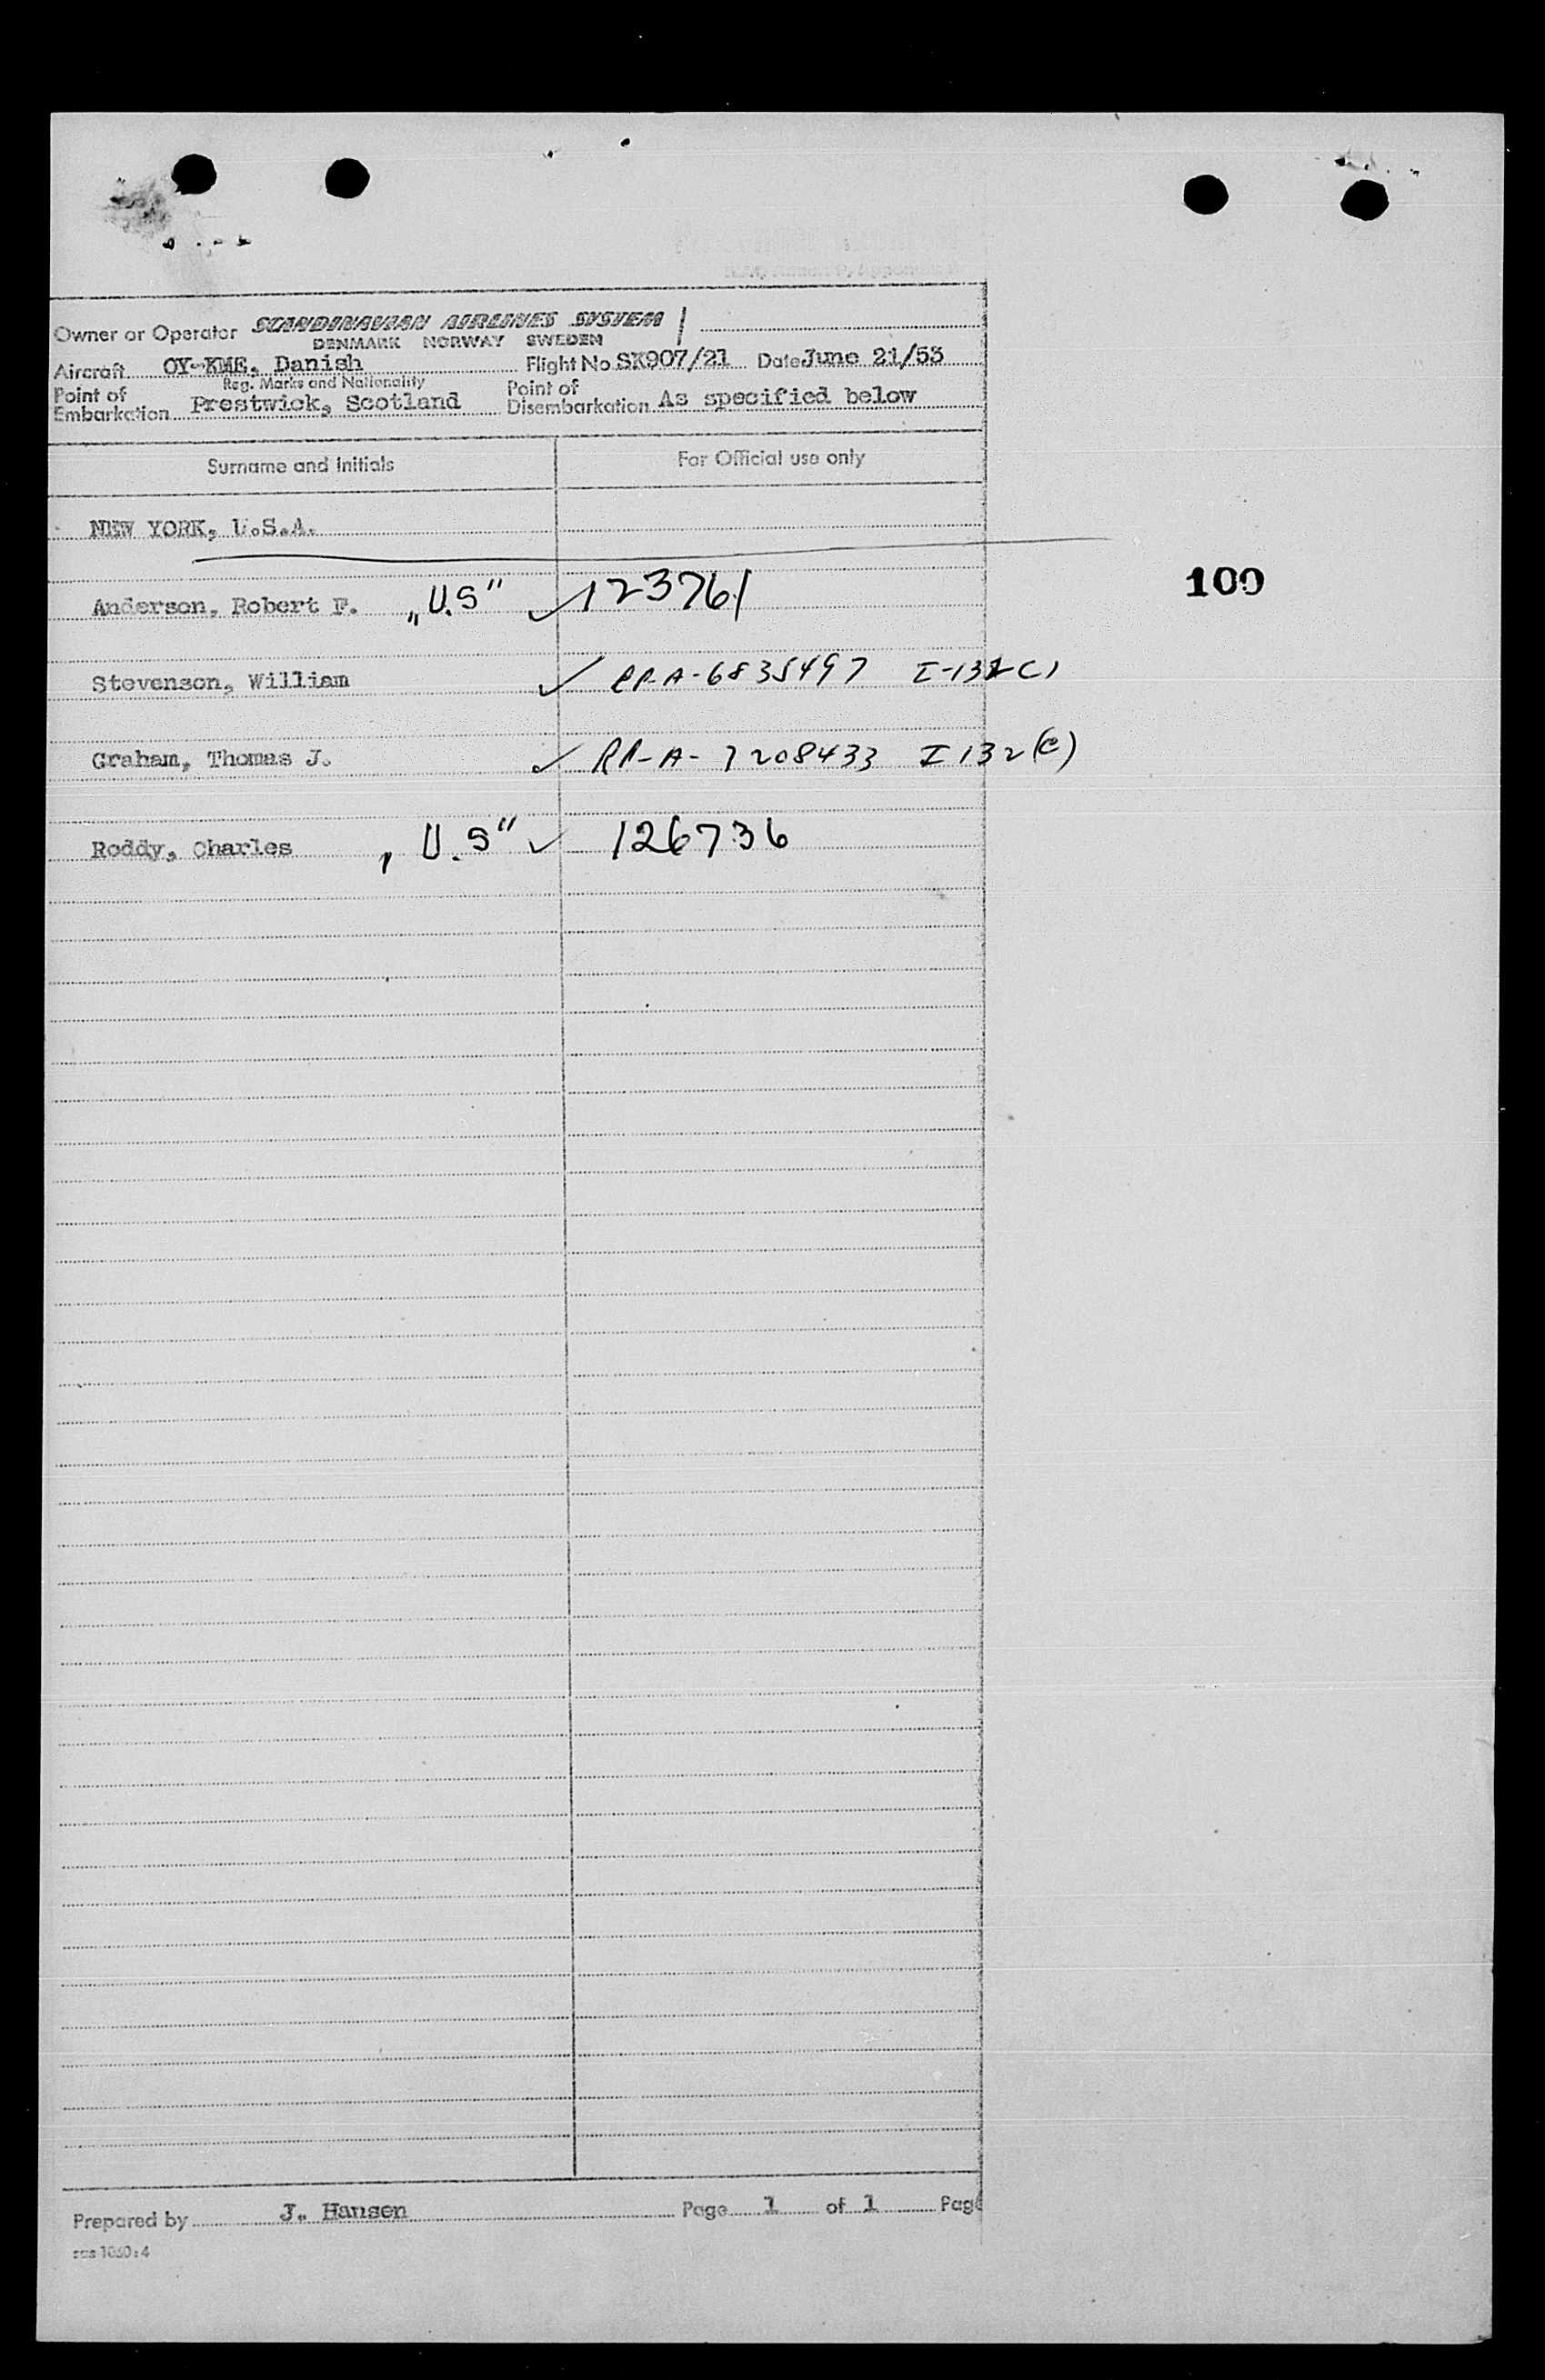 Owner or Operator SCANDINAVIAN AIRLINES SYSTEM
DENMARK NORWAY SWEDEN
Aircraft OY-KME, Danish Flight No SK907/21 Date June 21/53
Reg. Marks and Nationality
Point of Embarkation Prestwick, Scotland Point of Disembarkation As specified below
Surname and Initials For Official use only
NEW YORK, U.S.A.
100
Anderson, Robert F. „U.S" ✓ 123761
Stevenson, William ✓ RP-A-6835497 I-132C)
Graham, Thomas J. ✓ RP-A-7208433 I 132(C)
Roddy, Charles , U.S" ✓ 126736
Prepared by J. Hansen Page 1 of 1 Page
sas 1060:4